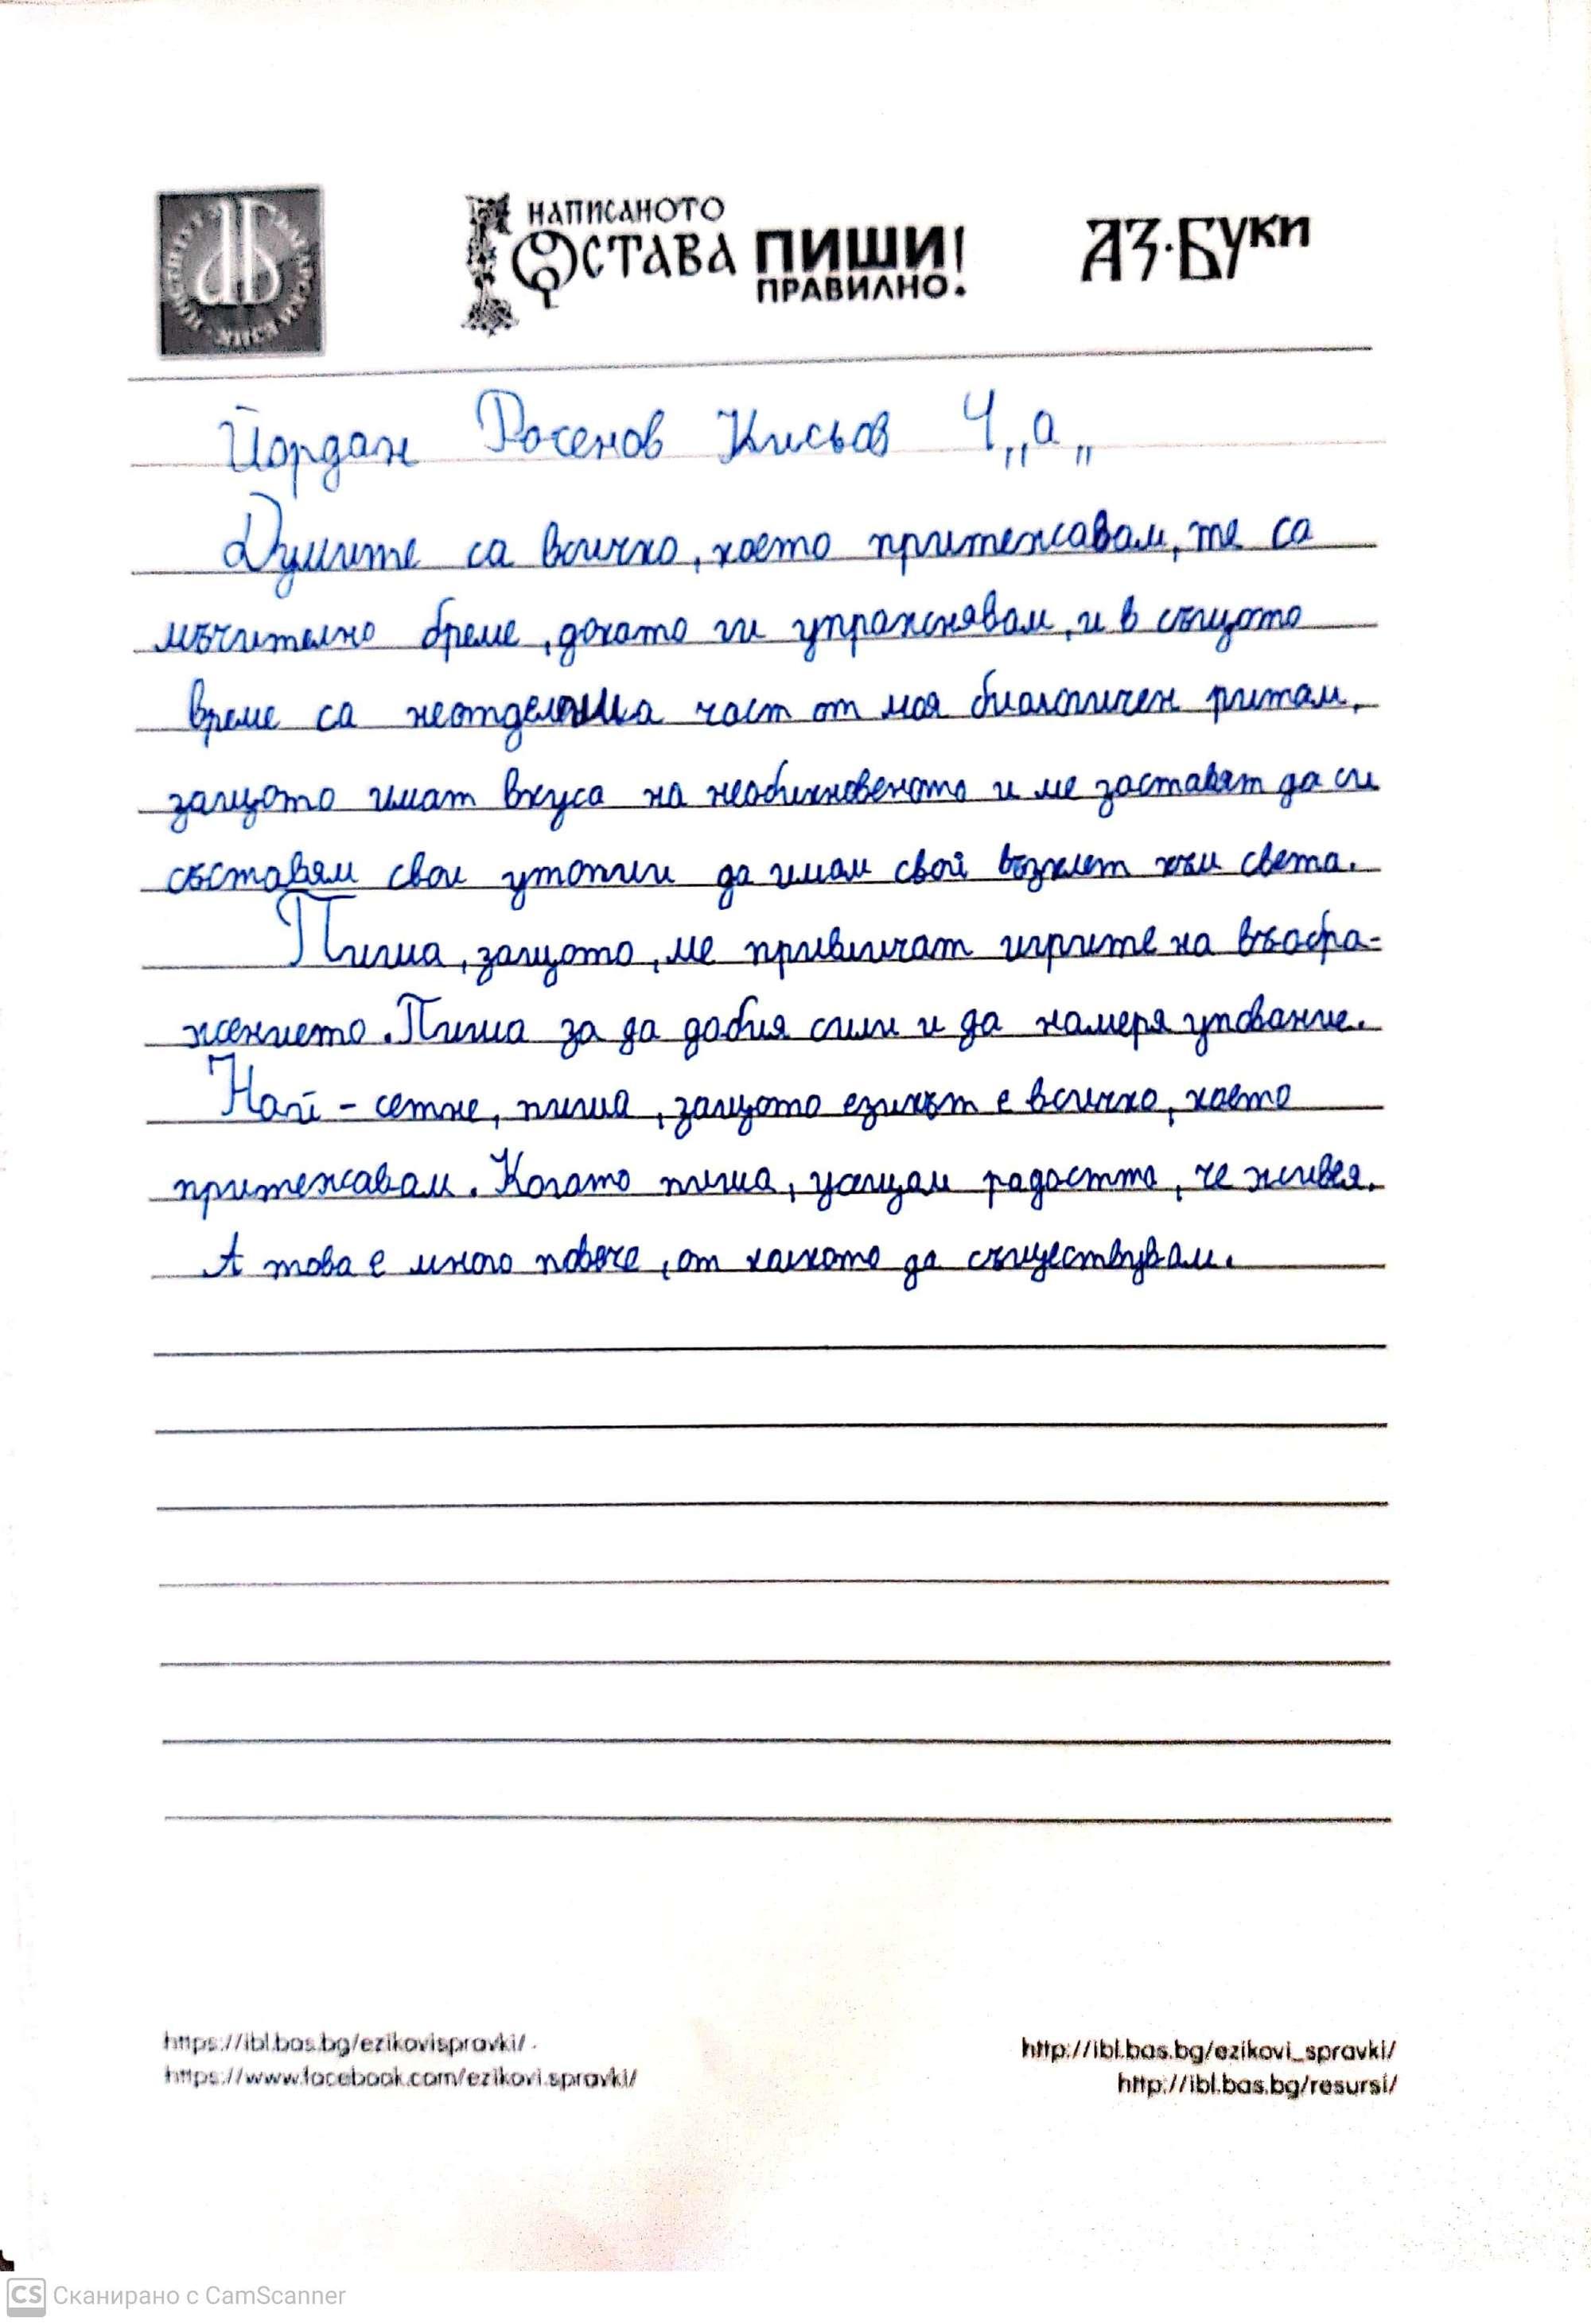 НАПИСАНОТО
ОСТАВА ПИШИ!
ПРАВИЛНО.
АЗ·БУКИ
Йордан Росенов Кисьов 4 „а„
Думите са всичко, което притежавам, те са
мъчително бреме, докато ги упражнявам, и в същото
време са неотделима част от моя биологичен ритам,
защото имат вкуса на необикновеното и ме заставят да си
съставям свои утопии да имам свой възглет към света.
Пиша, защото, ме привличат игрите на въобра-
жението. Пиша за да добия сили и да намеря упование.
Най - сетне, пиша, защото езикът е всичко, което
притежавам. Когато пиша, усещам радостта, че живея.
А това е много повече, от колкото да съществувам.
https://ibl.bas.bg/ezikovispravki/
https://www.facebook.com/ezikovi.spravki/
http://ibl.bas.bg/ezikovi_spravki/
http://ibl.bas.bg/resursi/
CS Сканирано с CamScanner